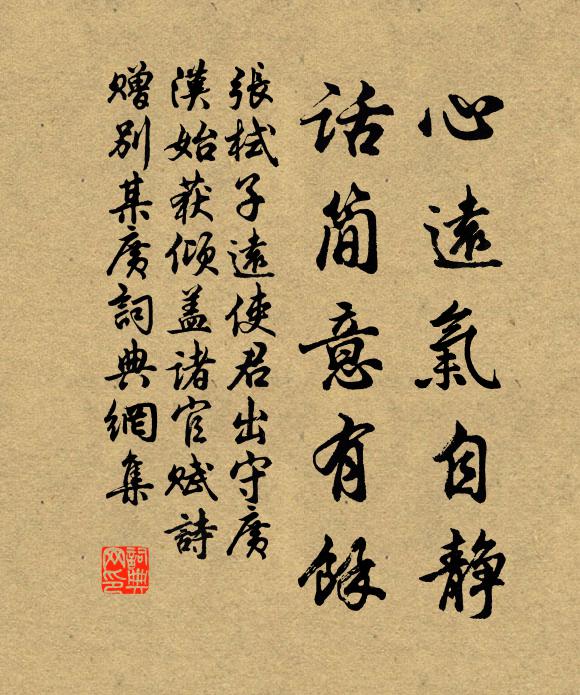 心遠氣自靜
話簡意有餘
張栻子遠使君出守廣
漢始获傾盖諸官賦詩
贈别某廣詞典網集
詞典网印